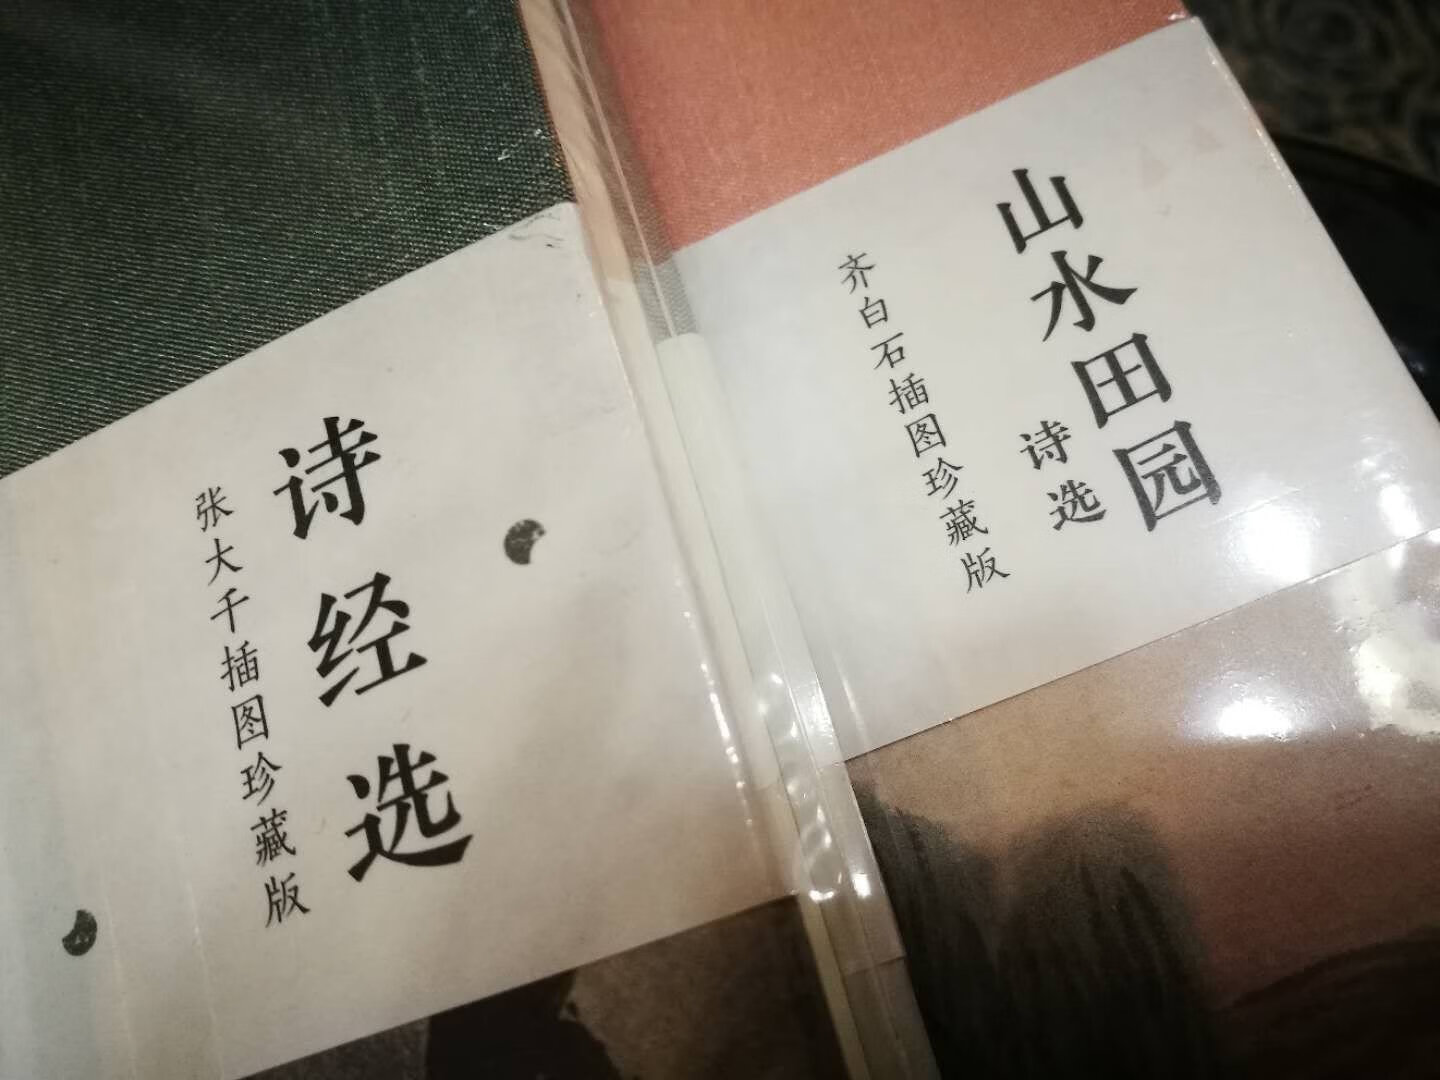 诗经选
张大千插图珍藏版
山水田园
诗选
齐白石插图珍藏版